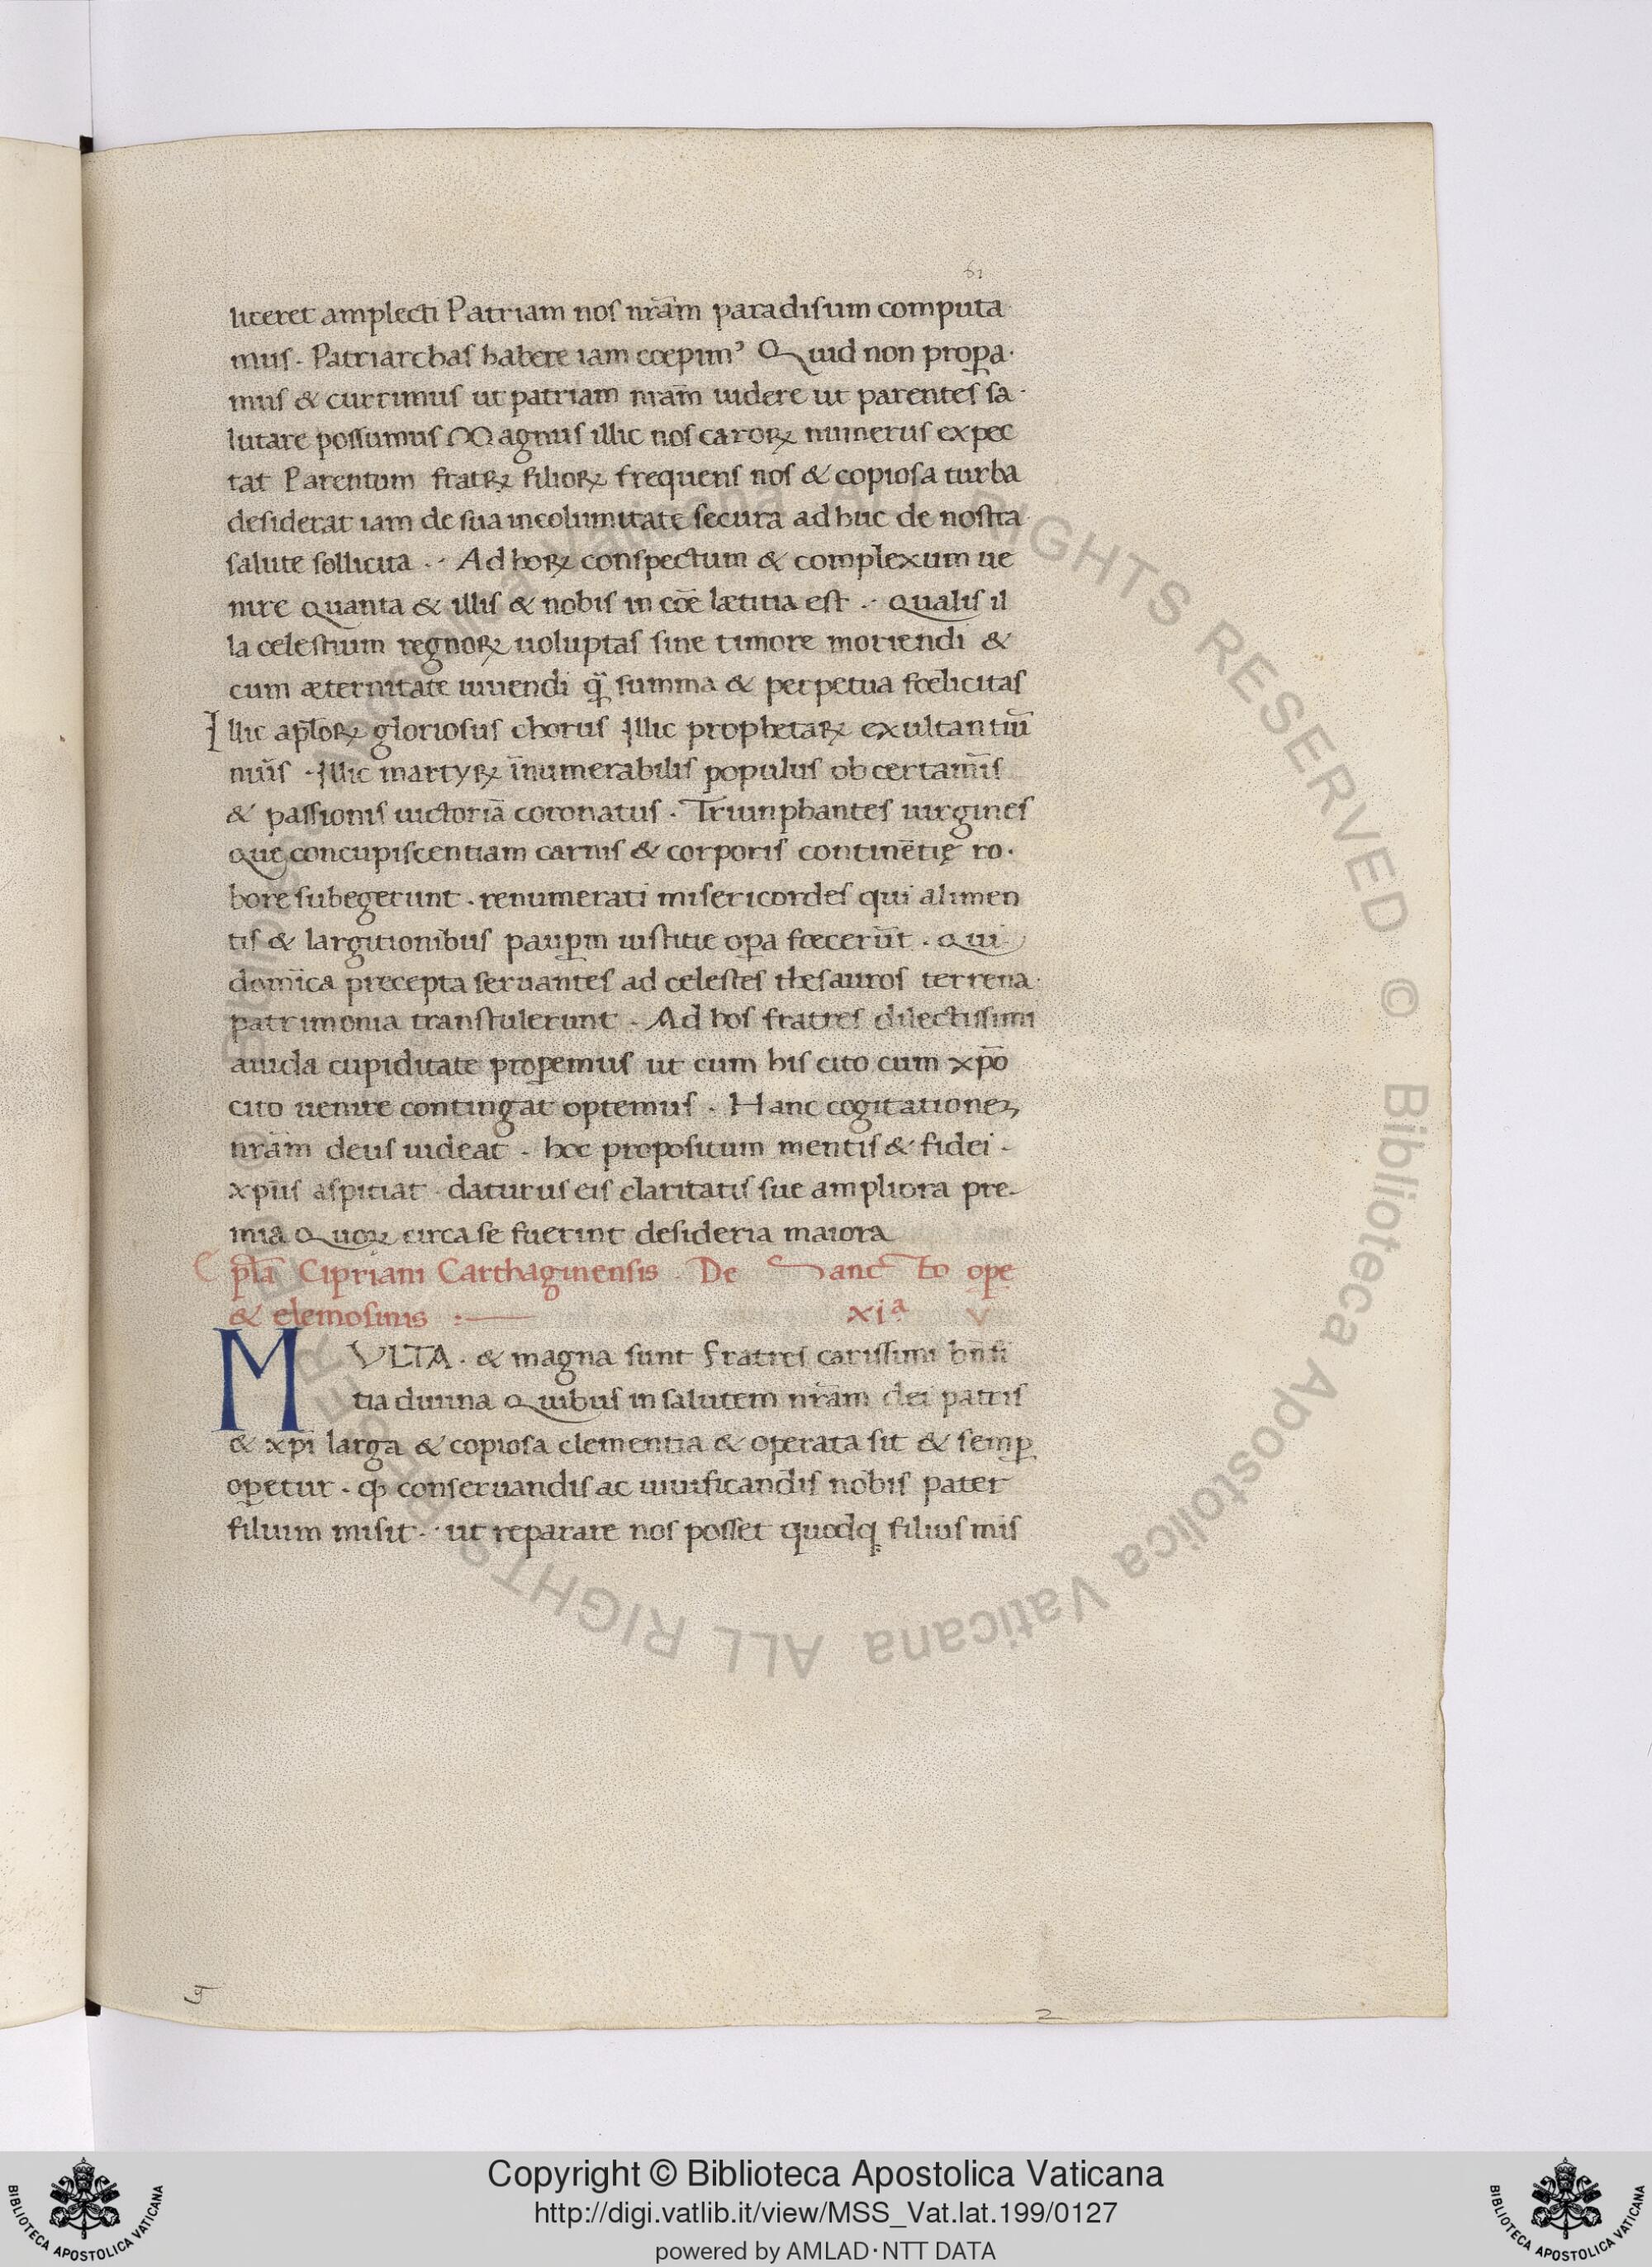 61
liceret amplecti Patriam nos nr̄am paradisum computa
mus · Patriarchas habere iam cœpimꝰ Quid non prop̱a·
mus & currimus ut patriam nr̄am uidere ut parentes sa·
lutare possumus Magnus illic nos caroꝝ numerus expec
tat Parentum fratꝝ filioꝝ frequens nos & copiosa turba
desiderat iam de sua incolumitate secura ad huc de nostra
salute sollicita ·· Ad hoꝝ conspectum & complexum ue
nire quanta & illis & nobis in cōe lætitia est ·· qualis il
la celestium regnoꝝ uoluptas sine timore moriendi &
cum æternitate uiuendi q̄ summa & perpetua fœlicitas
Illic apl̄oꝝ gloriosus chorus Illic prophetaꝝ exultantiū
nūs · Illic martyꝝ īnumerabilis populus ob certamīs
& passionis uictoriā coronatus · Triunphantes uirgines
que concupiscentiam carnis & corporis continētię ro·
bore subegerunt · renumerati misericordes qui alimen
tis & largitionibus paup̱m iustitie op̱a fœcerūt · qui
domīca precepta seruantes ad celestes thesauros terrena·
patrimonia transtulerunt · Ad hos fratres dilectissimi
auida cupiditate prop̱emus ut cum his cito cum xp̄o
cito uenire contingat optemus · Hanc cogitationeꝫ
nr̄am deus uideat · hoc propositum mentis & fidei ·
xp̄us aspitiat · daturus eis claritatis sue ampliora pre·
mia Quoꝝ circa se fuerint desideria maiora
Ep̄la Cipriani Carthaginensis · De Sanc̄to ope
& elemosinis :— xiª v
MULTA · & magna sunt fratres carissimi bn̄fi
tia diuina Quibus in salutem nr̄am dei patris
& xp̄i larga & copiosa clementia & operata sit & semꝑ
oꝑetur · ꝙ conseruandis ac uiuificandis nobis pater
filium misit · ut reparare nos posset quodqꝫ filius mis
2
Copyright © Biblioteca Apostolica Vaticana
http://digi.vatlib.it/view/MSS_Vat.lat.199/0127
powered by AMLAD·NTT DATA
BIBLIOTECA APOSTOLICA VATICANA
BIBLIOTECA APOSTOLICA VATICANA
© Biblioteca Apostolica Vaticana ALL RIGHTS RESERVED © Biblioteca Apostolica Vaticana ALL RIGHTS RESERVED